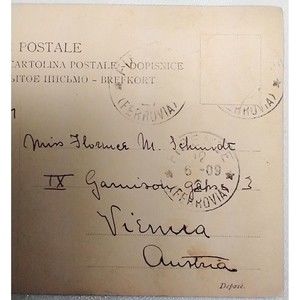 POSTALE
CARTOLINA POSTALE - DOPISNICE
ПИСЬМО - BREFKORT
(FERROVIA)
(FERROVIA)
Miss Florence M. Schmidt
IX Garnison gasse 3
12
6-09
(FERROVIA)
Vienna
Austria
Déposé.